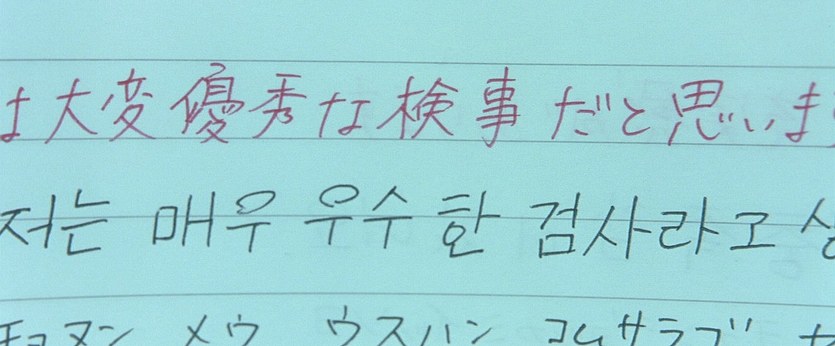 は大変優秀な検事だと思いま
저는 매우 우수한 검사라고 생
チョヌン メウ ウスハン コムサラゴ